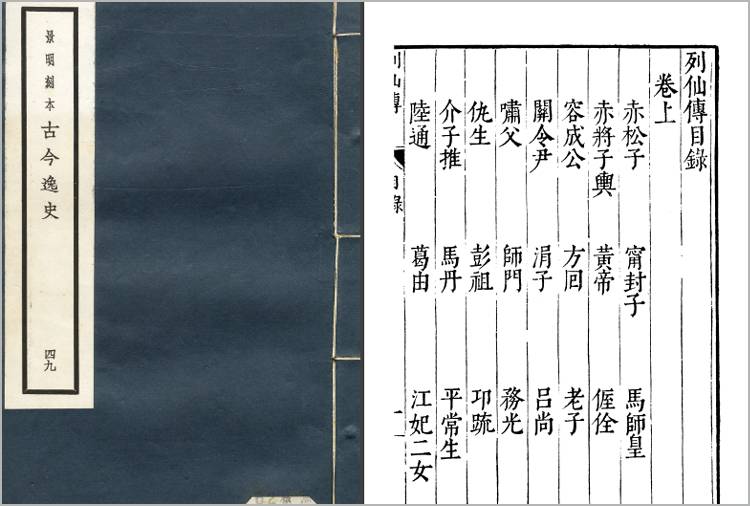 景明刻本 古今逸史
四九
列仙傳目錄
卷上
赤松子 甯封子 馬師皇
赤將子輿 黃帝 偓佺
容成公 方回 老子
關令尹 涓子 呂尚
嘯父 師門 務光
仇生 彭祖 卭疏
介子推 馬丹 平常生
陸通 葛由 江妃二女
列仙傳 目錄